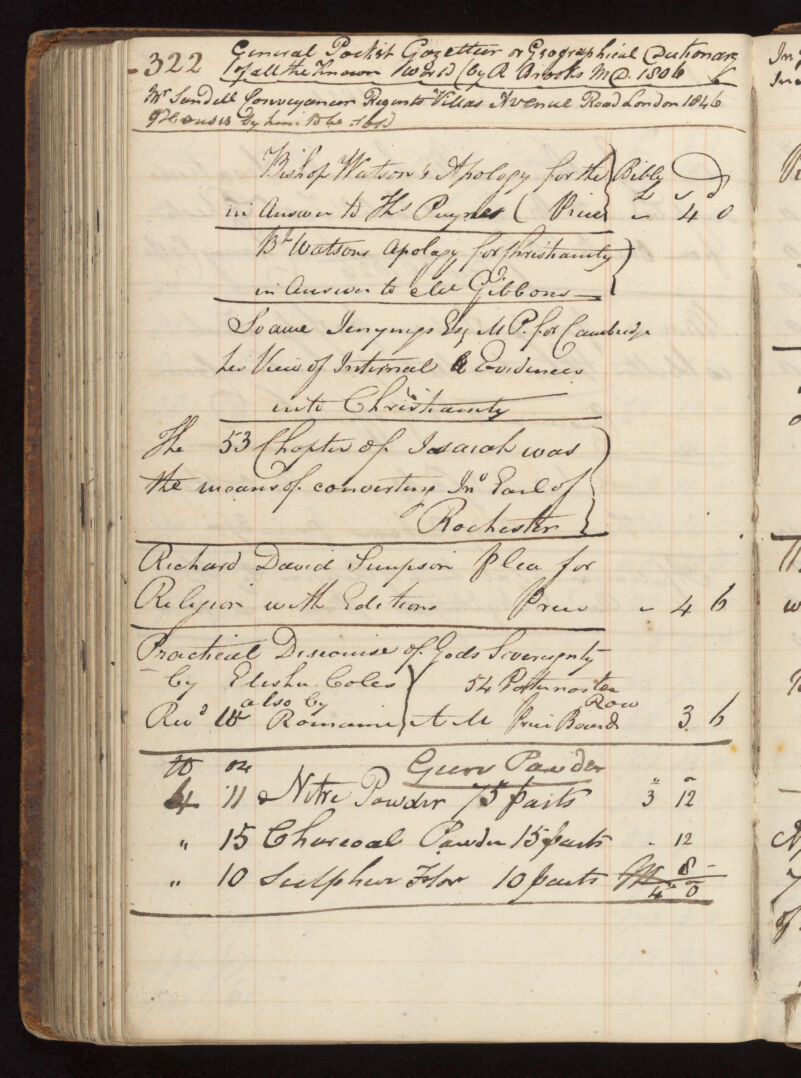 322 General Pocket Gazetteer or Geographical Dictionary
of all the Known World (by R Brooks M D. 1806
Mr Sandell Conveyancer Regents Villas Avenue Road London 1846
9 Houses by him to be sold
Bishop Watson's Apology for the Bible
£ s d
in Answer to Ths Paynes ( Price " 4 0
Bp Watsons Apology for Christianity
in Answer to Mr Gibbons
Soame Jenyngs Esq M P. for Cambridge
his View of Internal Evidences
into Christianity
The 53 Chapter of Isaiah was
the means of converting Jno Earl of
Rochester
Richard David Simpson Plea for
Religion with Editions Price " 4 6
Practical Discourse of Gods Sovereignty
by Elisha Coles 54 Paternoster
Row
also by
Revd W Romaine A M Price Boards 3 6
lb oz Gun Powder
4 11 Nitre Powder 75 parts 3 12
" 15 Charcoal Powder 15 parts - 12
" 10 Sulphur Flor 10 parts 8
4 0